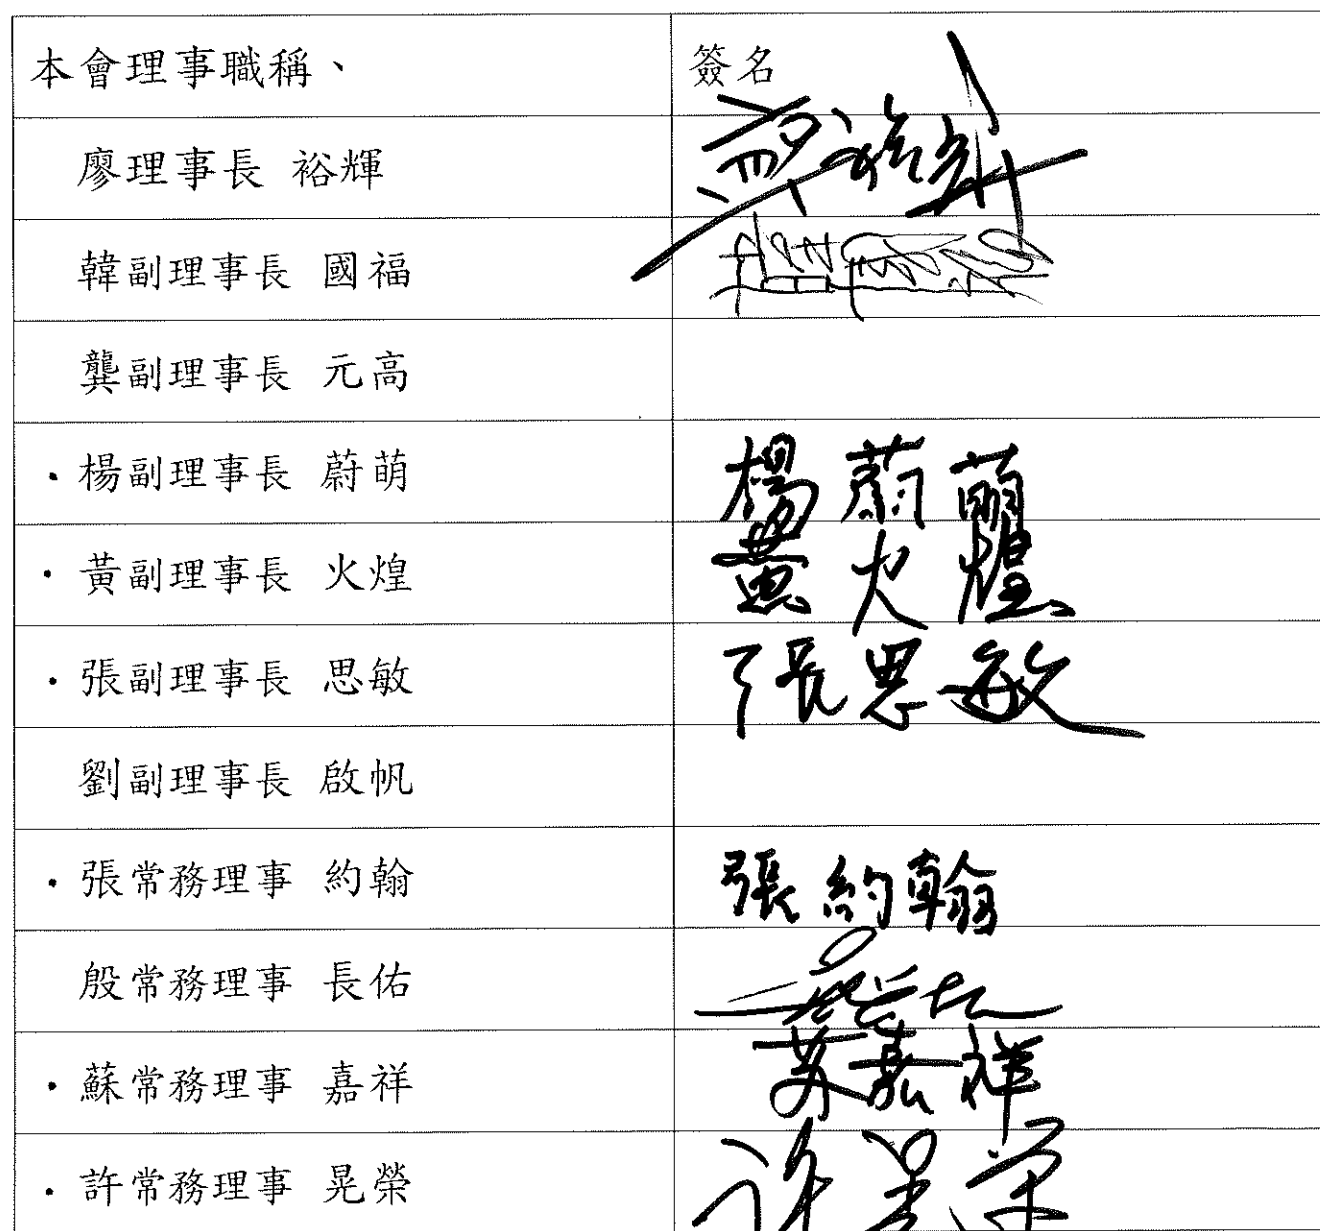 本會理事職稱、 簽名
廖理事長 裕輝 廖裕輝
韓副理事長 國福
龔副理事長 元高
·楊副理事長 蔚萌 楊蔚萌
·黃副理事長 火煌 黃火煌
·張副理事長 思敏 張思敏
劉副理事長 啟帆
·張常務理事 約翰 張約翰
殷常務理事 長佑
·蘇常務理事 嘉祥 苏嘉祥
·許常務理事 晃榮 许晃荣